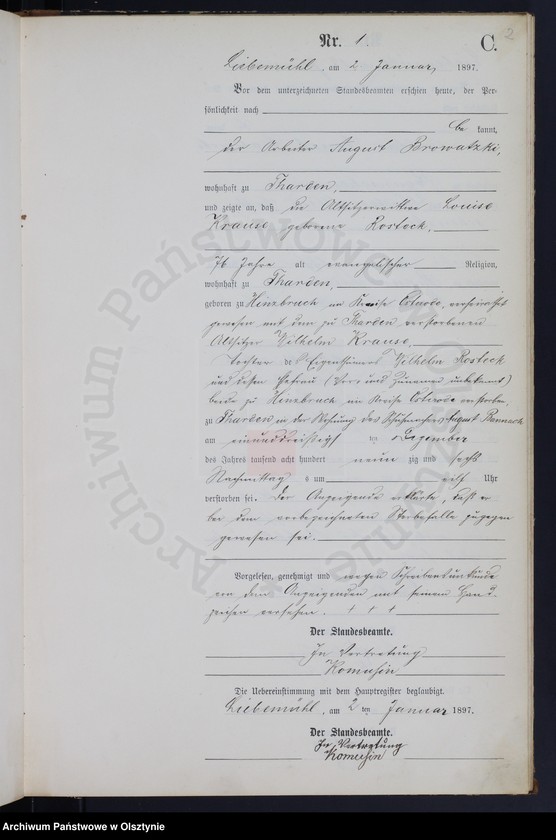 2
Nr. 1. C.
Liebemühl, am 2 Januar, 1897.
Vor dem unterzeichneten Standesbeamten erschien heute, der Per-
sönlichkeit nach
be kannt,
der Arbeiter August Browatzki,
wohnhaft zu Tharden,
und zeigte an, daß die Altsitzerwittwe Louise
Krause geborene Rosteck.
76 Jahre alt evangelischer Religion,
wohnhaft zu Tharden,
geboren zu Hinzbruch im Kreise Osterode, verheirathet
gewesen mit dem zu Tharden verstorbenen
Altsitzer Wilhelm Krause.
Tochter des Eigenthümers Wilhelm Rosteck
und dessen Ehefrau (Vor- und Zuname unbekannt)
beide zu Hinzbruch im Kreise Osterode verstorben,
zu Tharden in der Wohnung des August
am einunddreißigst ten Dezember
des Jahres tausend acht hundert neun zig und sechs
Nachmittag s um elf Uhr
verstorben sei. Der Anzeigende erklärte, daß er
bei dem vorbezeichneten Sterbefalle zugegen
gewesen sei.
Vorgelesen, genehmigt und wegen Schreibensunkunde
von dem Anzeigenden mit seinem Hand-
zeichen versehen. + + +
Der Standesbeamte.
In Vertretung
Komusin
Die Uebereinstimmung mit dem Hauptregister beglaubigt.
Liebemühl, am 2 ten Januar 1897.
Der Standesbeamte.
In Vertretung
Komusin
Archiwum Państwowe w Olsztynie
Archiwum Państwowe w Olsztynie